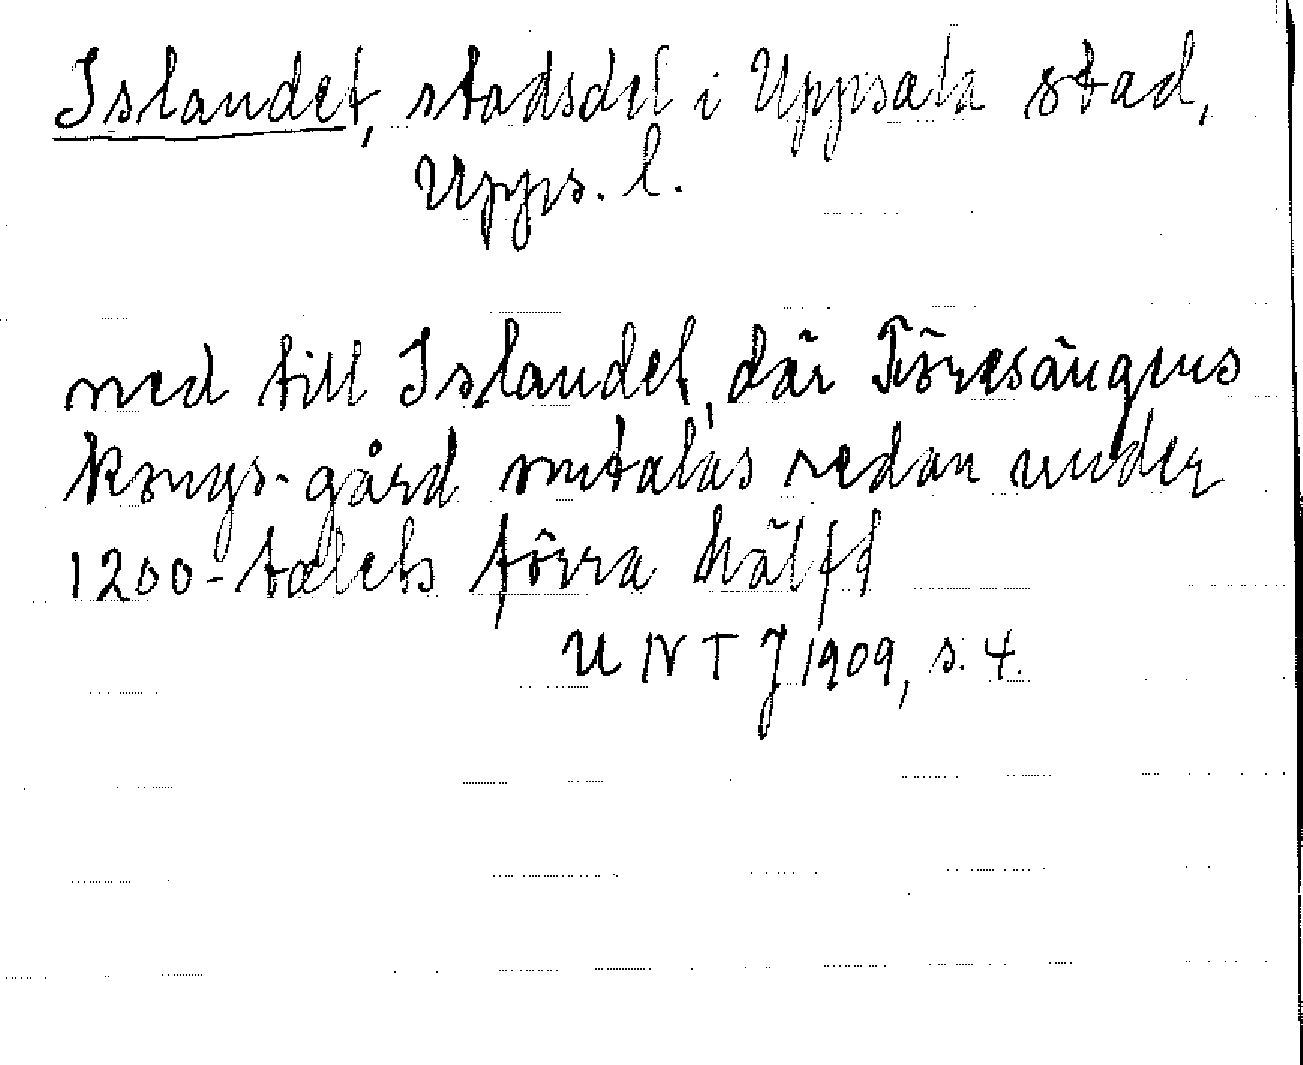 Islandet, stadsdel i Uppsala stad,
Upps. l.
ned till Islandet, där Föresängens
kungs-gård omtalas redan under
1200-talets förra hälft
UNT J 1909, s. 4.